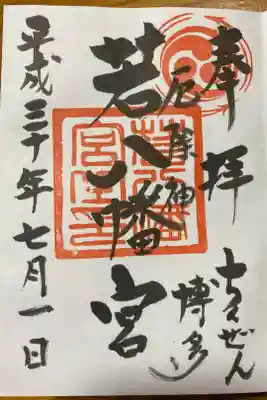 奉拝
ちくぜん
博多
厄除神
若八幡宮
平成三十年七月一日